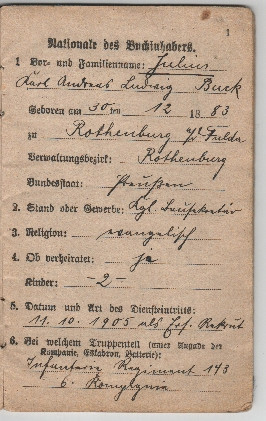 1
Nationale des Buchinhabers.
1 Vor- und Familienname: Julius
Karl Andreas Ludwig Buck
Geboren am 30 ten 12 1883
zu Rothenburg a/ Fulda
Verwaltungsbezirk: Rothenburg
Bundesstaat: Preußen
2. Stand oder Gewerbe: Kgl.
3. Religion: evangelisch
4. Ob verheiratet: ja
Kinder: -2-
5. Datum und Art des Diensteintritts:
11. 10. 1905 als Ers. Rekrut
6. Bei welchem Truppenteil (unter Angabe der
Kompanie, Eskadron, Batterie):
Infanterie Regiment 143
6. Kompagnie